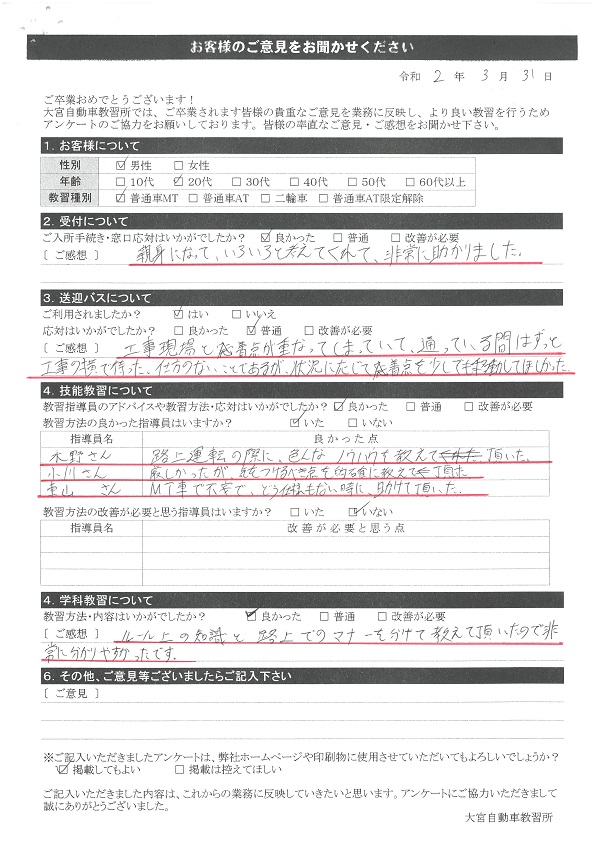 お客様のご意見をお聞かせください
令和 2 年 3 月 31 日
ご卒業おめでとうございます！
大宮自動車教習所では、ご卒業されます皆様の貴重なご意見を業務に反映し、より良い教習を行うため
アンケートのご協力をお願いしております。皆様の率直なご意見・ご感想をお聞かせ下さい。
1. お客様について
性別 ☑男性 □女性
年齢 □10代 ☑20代 □30代 □40代 □50代 □60代以上
教習種別 ☑普通車MT □普通車AT □二輪車 □普通車AT限定解除
2. 受付について
ご入所手続き・窓口応対はいかがでしたか？ ☑良かった □普通 □改善が必要
[ ご感想 ] 親身になって、いろいろと考えてくれて、非常に助かりました。
3. 送迎バスについて
ご利用されましたか？ ☑はい □いいえ
応対はいかがでしたか？ □良かった ☑普通 □改善が必要
[ ご感想 ] 工事現場と発着点が重なってしまっていて、通っている間はずっと
工事の横で待った。仕方のないことであるが、状況に応じて発着点を少しでも移動してほしかった。
4. 技能教習について
教習指導員のアドバイスや教習方法・応対はいかがでしたか？ ☑良かった □普通 □改善が必要
教習方法の良かった指導員はいますか？ ☑いた □いない
指導員名 良かった点
水野さん 路上運転の際に、色んなノウハウを教えて頂いた。
小川さん 厳しかったが気をつけるべき点を的確に教えて頂けた
さん MT車で不安で、どう仕様もない時に、助けて頂いた。
教習方法の改善が必要と思う指導員はいますか？ □いた ☑いない
指導員名 改善が必要と思う点
4. 学科教習について
教習方法・内容はいかがでしたか？ ☑良かった □普通 □改善が必要
[ ご感想 ] ルール上の知識と路上でのマナーを分けて教えて頂いたので非
常に分かりやすかったです。
6. その他、ご意見等ございましたらご記入下さい
[ ご意見 ]
※ご記入いただきましたアンケートは、弊社ホームページや印刷物に使用させていただいてもよろしいでしょうか？
☑掲載してもよい □掲載は控えてほしい
ご記入いただきました内容は、これからの業務に反映していきたいと思います。アンケートにご協力いただきまして
誠にありがとうございました。
大宮自動車教習所